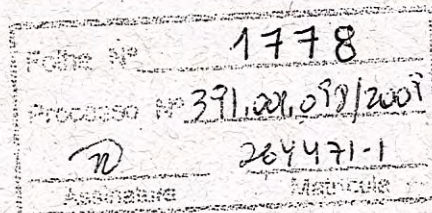 Folha Nº 1778
Processo Nº 391.001.098/2009
264471-1
Assinatura Matrícula